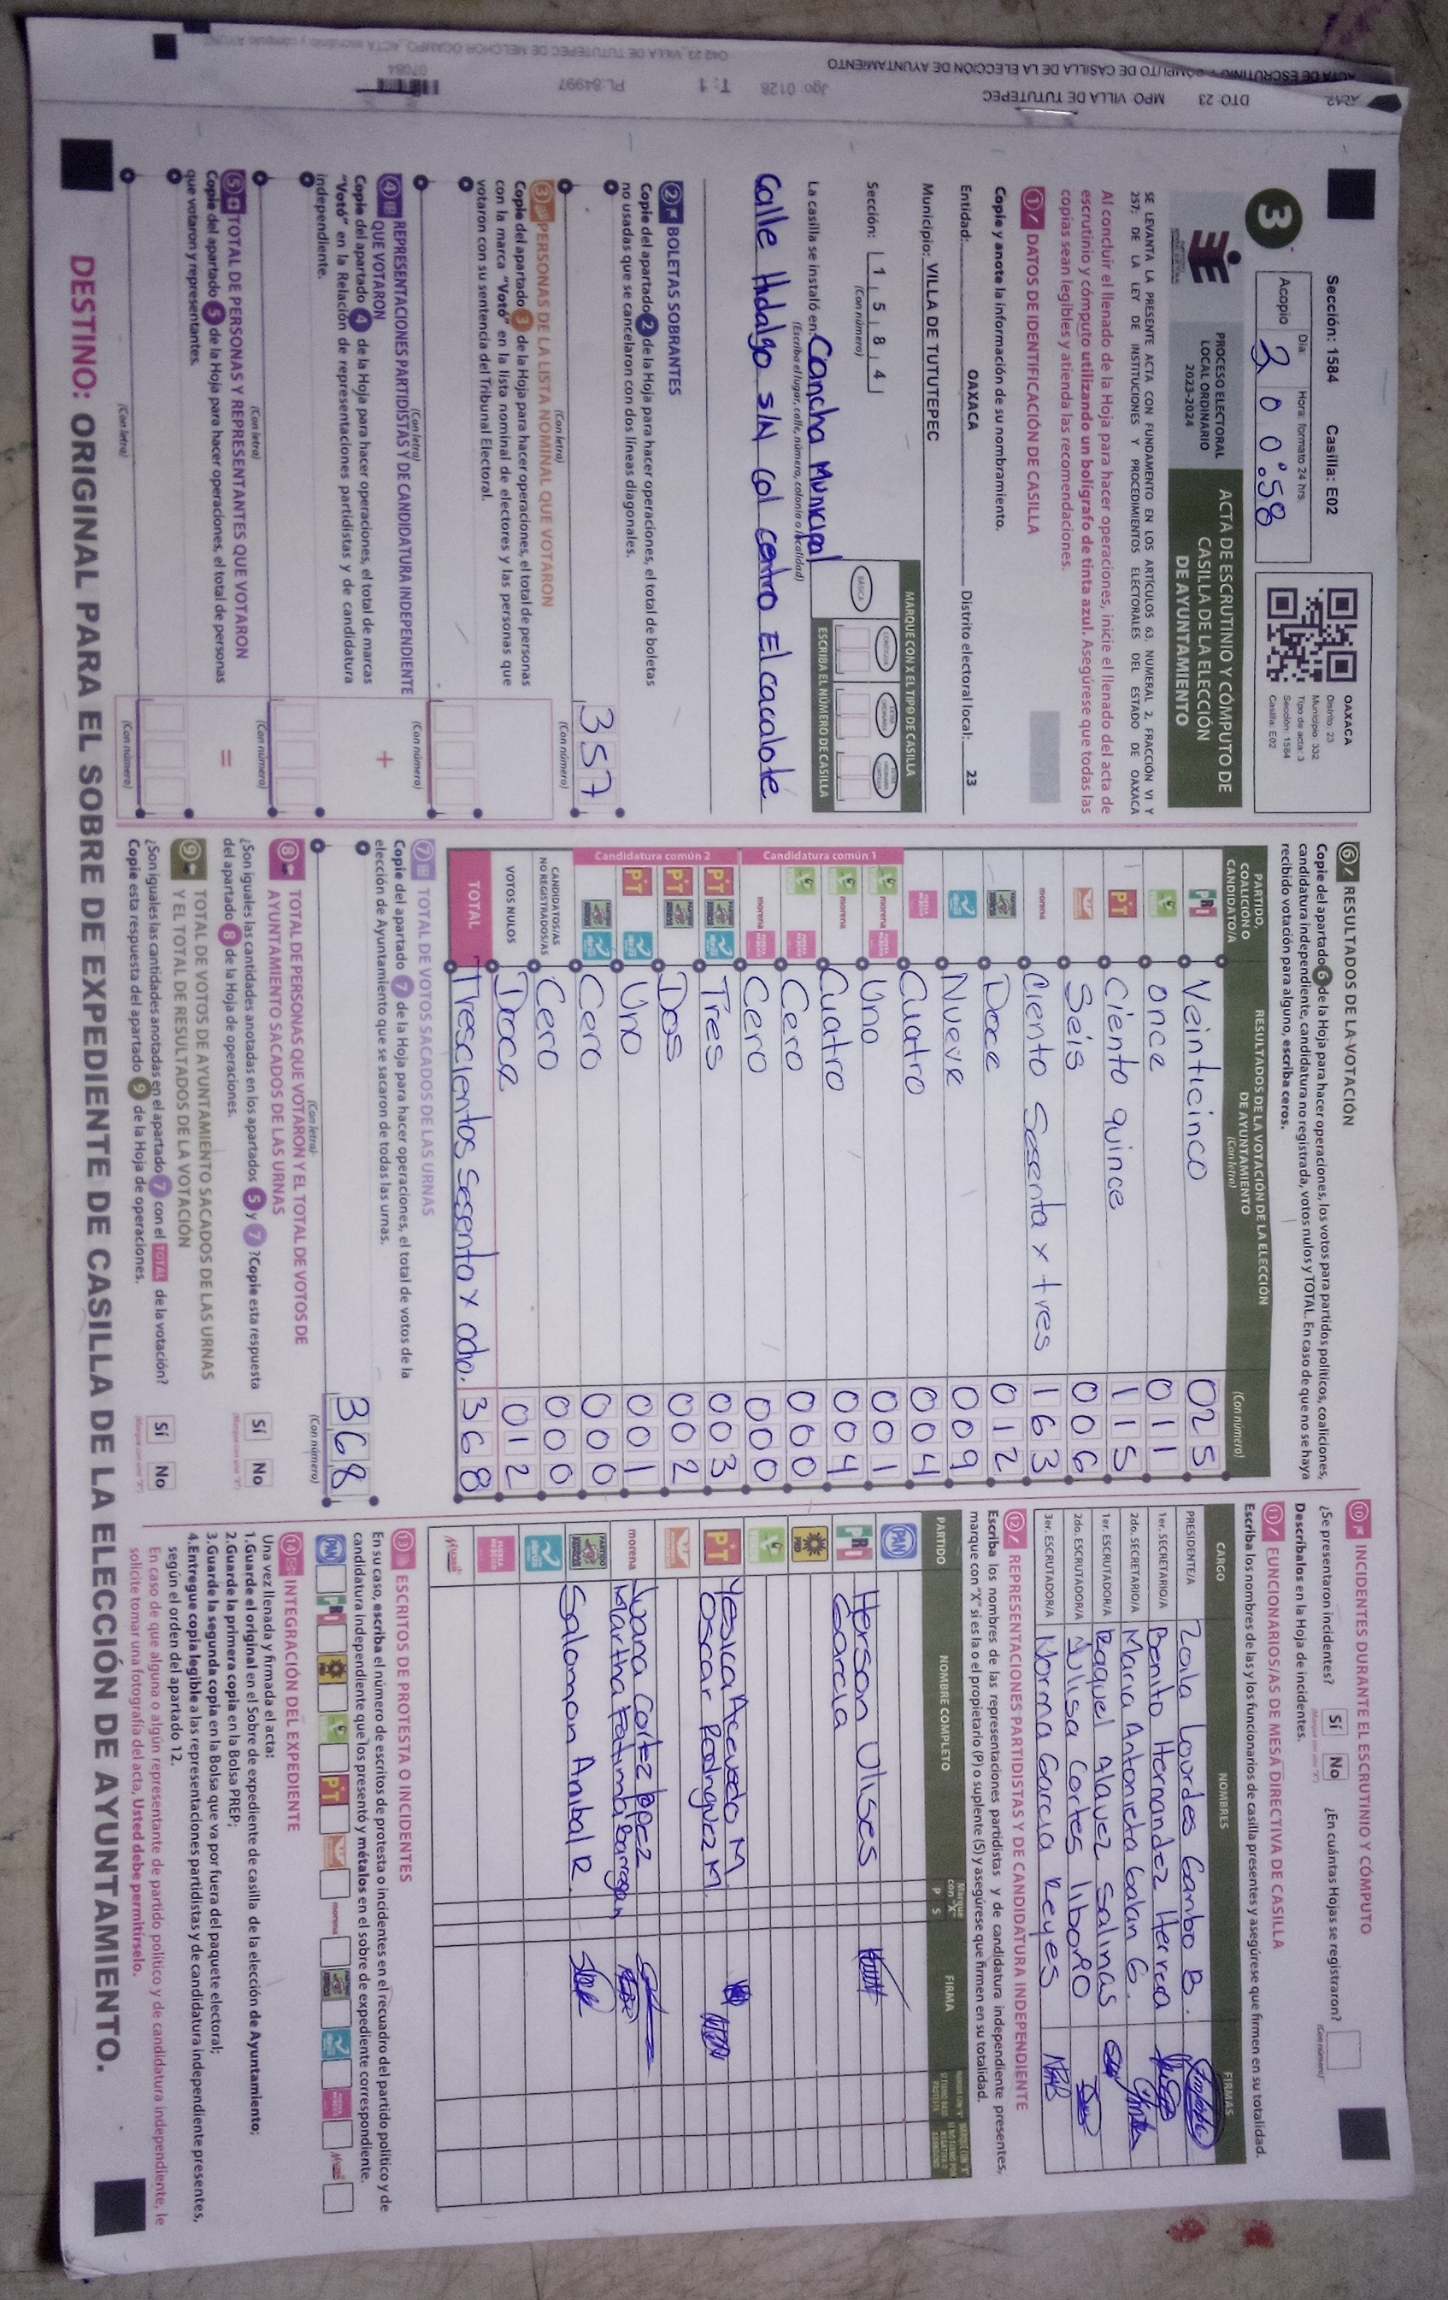 ACTA DE ESCRUTINIO Y CÓMPUTO DE CASILLA DE LA ELECCIÓN DE AYUNTAMIENTO
DTO: 23 MPO: VILLA DE TUTUTEPEC
Jgo: 0128 T: 1 PL:84997
Sección: 1584 Casilla: E02
3
Día: Hora: formato 24 hrs.
Acopio 3 00:58
OAXACA
Distrito: 23
Municipio: 332
Tipo de acta: 3
Sección: 1584
Casilla: E02
PROCESO ELECTORAL
LOCAL ORDINARIO
2023-2024
ACTA DE ESCRUTINIO Y CÓMPUTO DE
CASILLA DE LA ELECCIÓN
DE AYUNTAMIENTO
SE LEVANTA LA PRESENTE ACTA CON FUNDAMENTO EN LOS ARTÍCULOS 63, NUMERAL 2, FRACCIÓN VI Y
257; DE LA LEY DE INSTITUCIONES Y PROCEDIMIENTOS ELECTORALES DEL ESTADO DE OAXACA
Al concluir el llenado de la Hoja para hacer operaciones, inicie el llenado del acta de
escrutinio y cómputo utilizando un bolígrafo de tinta azul. Asegúrese que todas las
copias sean legibles y atienda las recomendaciones.
1 DATOS DE IDENTIFICACIÓN DE CASILLA
Copie y anote la información de su nombramiento.
Entidad: OAXACA Distrito electoral local: 23
Municipio: VILLA DE TUTUTEPEC
Sección: 1 5 8 4
(Con número)
MARQUE CON X EL TIPO DE CASILLA
BÁSICA
ESCRIBA EL NÚMERO DE CASILLA
La casilla se instaló en: Cancha Municipal
(Escriba el lugar, calle, número, colonia o localidad)
Calle Hidalgo S/N Col centro El cacalote
2 BOLETAS SOBRANTES
Copie del apartado 2 de la Hoja para hacer operaciones, el total de boletas
no usadas que se cancelaron con dos líneas diagonales.
357
(Con letra) (Con número)
3 PERSONAS DE LA LISTA NOMINAL QUE VOTARON
Copie del apartado 3 de la Hoja para hacer operaciones, el total de personas
con la marca "Votó" en la lista nominal de electores y las personas que
votaron con su sentencia del Tribunal Electoral.
(Con letra) (Con número)
4 REPRESENTACIONES PARTIDISTAS Y DE CANDIDATURA INDEPENDIENTE
QUE VOTARON +
Copie del apartado 4 de la Hoja para hacer operaciones, el total de marcas
"Votó" en la Relación de representaciones partidistas y de candidatura
independiente.
(Con letra) (Con número)
5 TOTAL DE PERSONAS Y REPRESENTANTES QUE VOTARON =
Copie del apartado 5 de la Hoja para hacer operaciones, el total de personas
que votaron y representantes.
(Con letra) (Con número)
6 RESULTADOS DE LA VOTACIÓN
Copie del apartado 6 de la Hoja para hacer operaciones, los votos para partidos políticos, coaliciones,
candidatura independiente, candidatura no registrada, votos nulos y TOTAL. En caso de que no se haya
recibido votación para alguno, escriba ceros.
PARTIDO, COALICIÓN O CANDIDATO/A
RESULTADOS DE LA VOTACIÓN DE LA ELECCIÓN
DE AYUNTAMIENTO
(Con letra) (Con número)
PRI Veinticinco 025
once 011
PT Ciento quince 115
Seis 006
morena Ciento Sesenta y tres 163
Doce 012
Nueve 009
Cuatro 004
Candidatura común 1
morena Uno 001
morena Cuatro 004
Cero 000
morena Cero 000
Candidatura común 2
PT Tres 003
PT Dos 002
PT Uno 001
Cero 000
CANDIDATOS/AS
NO REGISTRADOS/AS Cero 000
VOTOS NULOS Doce 012
TOTAL Trescientos Sesenta y ocho. 368
7 TOTAL DE VOTOS SACADOS DE LAS URNAS
Copie del apartado 7 de la Hoja para hacer operaciones, el total de votos de la
elección de Ayuntamiento que se sacaron de todas las urnas.
368
(Con letra) (Con número)
8 TOTAL DE PERSONAS QUE VOTARON Y EL TOTAL DE VOTOS DE
AYUNTAMIENTO SACADOS DE LAS URNAS
¿Son iguales las cantidades anotadas en los apartados 5 y 7? Copie esta respuesta
del apartado 8 de la Hoja de operaciones.
Sí No
9 TOTAL DE VOTOS DE AYUNTAMIENTO SACADOS DE LAS URNAS
Y EL TOTAL DE RESULTADOS DE LA VOTACIÓN
¿Son iguales las cantidades anotadas en el apartado 7 con el TOTAL de la votación?
Copie esta respuesta del apartado 9 de la Hoja de operaciones.
Sí No
10 INCIDENTES DURANTE EL ESCRUTINIO Y CÓMPUTO
¿Se presentaron incidentes? Sí No ¿En cuántas Hojas se registraron?
(Con número)
Descríbalos en la Hoja de incidentes.
11 FUNCIONARIOS/AS DE MESA DIRECTIVA DE CASILLA
Escriba los nombres de las y los funcionarios de casilla presentes y asegúrese que firmen en su totalidad.
CARGO NOMBRES FIRMAS
PRESIDENTE/A Zoila Lourdes Gambo B.
1er. SECRETARIO/A Benito Hernandez Herrera
2do. SECRETARIO/A Maria Antonieta Galan G.
1er. ESCRUTADOR/A Raquel Alavez Salinas
2do. ESCRUTADOR/A Julisa Cortes liborio
3er. ESCRUTADOR/A Norma Garcia Reyes
12 REPRESENTACIONES PARTIDISTAS Y DE CANDIDATURA INDEPENDIENTE
Escriba los nombres de las representaciones partidistas y de candidatura independiente presentes,
marque con "X" si es la o el propietario (P) o suplente (S) y asegúrese que firmen en su totalidad.
PARTIDO NOMBRE COMPLETO Marque con "X" P S FIRMA
PAN
PRI Herson Ulises
Garcia
PRD
PT Yesica Acevedo M
Oscar Rodriguez M.
morena Juana Cortez lopez
Martha Fatima Barragan
Salomon Anibal R.
13 ESCRITOS DE PROTESTA O INCIDENTES
En su caso, escriba el número de escritos de protesta o incidentes en el recuadro del partido político y de
candidatura independiente que los presentó y métalos en el sobre de expediente correspondiente.
PAN PRI PRD PT morena
14 INTEGRACIÓN DEL EXPEDIENTE
Una vez llenada y firmada el acta:
1.Guarde el original en el Sobre de expediente de casilla de la elección de Ayuntamiento;
2.Guarde la primera copia en la Bolsa PREP;
3.Guarde la segunda copia en la Bolsa que va por fuera del paquete electoral;
4.Entregue copia legible a las representaciones partidistas y de candidatura independiente presentes,
según el orden del apartado 12.
En caso de que alguna o algún representante de partido político y de candidatura independiente, le
solicite tomar una fotografía del acta, Usted debe permitírselo.
DESTINO: ORIGINAL PARA EL SOBRE DE EXPEDIENTE DE CASILLA DE LA ELECCIÓN DE AYUNTAMIENTO.